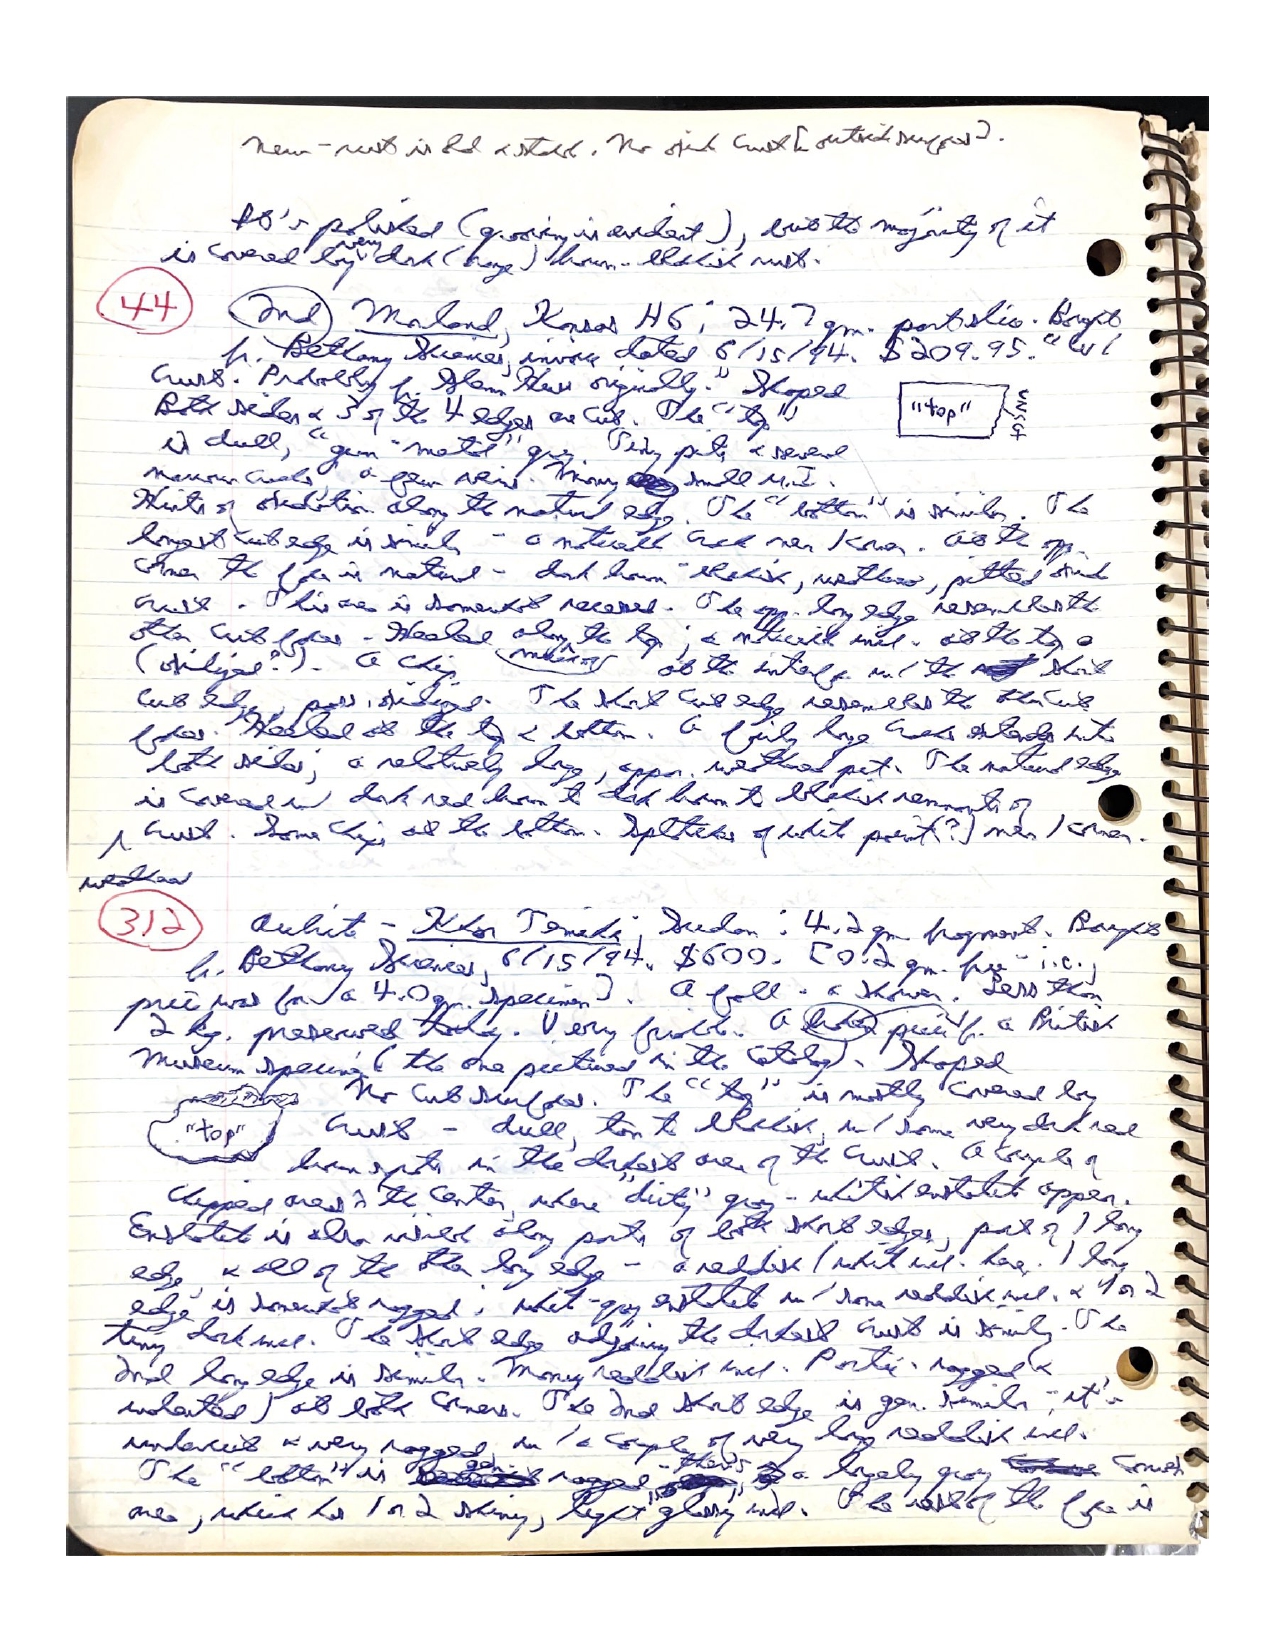 new - rust is red & stable. No outside crust [outside surfaces].
It's polished (grooving is evident), but the majority of it
is covered by very dark (range) brown-blackish rust.
44 2nd Morland, Kansas H6; 24.7 gm. part slice. Bought
fr. Bethany Sciences, invoice dated 6/15/94. $209.95. "w/
crust. Probably fr. Glenn Huss originally." Shaped
"top" UNCUT
Both sides & 3 of the 4 edges are cut. The "top"
is dull, "gun-metal" gray. Tiny pits & several
narrow cracks, a few veins. Many small M.I.
Hints of oxidation along the natural edge. The "bottom" is similar. The
longest cut edge is similar - a noticeable crack near 1 corner. At the opp.
corner the face is natural - dark brown-blackish, weathered, pitted
crust. This area is somewhat recessed. The opp. long edge resembles the
other cut faces - Heeled along the top; a noticeable incl. at the top
(oxidized?). A chip at the interface w/ the short
cut edge, poss. oxidized. The short cut edge resembles the other cut
faces. Heeled at the top & bottom. A fairly large crack extends into
both sides; a relatively large, appar. weathered pit. The natural edge
is covered w/ dark red brown to dark brown to blackish remnants of
weathered
crust. Some chips at the bottom. Splotches of white paint(?) near 1 corner.
312 Aubrite - Khor Temiki, Sudan: 4.2 gm. fragment. Bought
fr. Bethany Sciences, 6/15/94. $600. [0.2 gm. free - i.e.,
price was for a 4.0 gm. specimen]. A fall - a shower. Less than
2 kg. preserved today. Very friable. A piece fr. a British
Museum specimen (the one pictured in the catalog). Shaped
"top"
No cut surfaces. The "top" is mostly covered by
crust - dull, tan to blackish, w/ some very dark red
brown spots in the darkest area of the crust. A couple of
chipped areas in the center, where "dirty" gray-whitish enstatite appear.
Enstatite is also visible along parts of both short edges, part of 1 long
edge, & all of the other long edge - a reddish/white incl. here. 1 long
edge is somewhat ragged; white-gray enstatite w/ some reddish incl. & 1 or 2
tiny dark incl. The short edge adjoining the darkest crust is similar. The
2nd long edge is similar. Many reddish incl. Partic. ragged &
indented) at both corners. The 2nd short edge is gen. similar; it's
undercut & very ragged, w/ a couple of very large reddish incl.
The "bottom" is gen. ragged - there's a largely gray corner
area, which has 1 or 2 shiny, light "glassy" incl. The rest of the face is